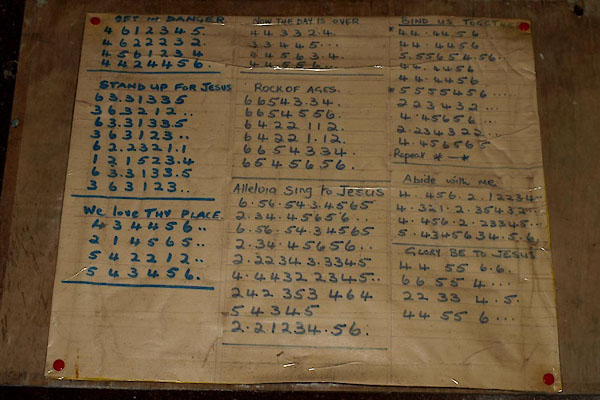 OFT IN DANGER
4 6 1 2 3 4 5.
4 6 2 2 2 3 2.
4 5 6 1 2 3 4
4 4 2 4 4 5 6.
STAND UP FOR JESUS
6 3.3 1 3 3 5
3 6 3 2 1 2 ..
6 3.3 1 3 3.5
3 6 3 1 2 3 ..
6 2.2 3 2 1.1
1 2 1 5 2 3.4
6 3.3 1 3 3.5
3 6 3 1 2 3 ..
We love THY PLACE.
4 3 4 4 5 6 ..
2 1 4 5 6 5..
5 4 2 2 1 2 ..
5 4 3 4 5 6.
NOW THE DAY IS OVER
4 4 3 3 2.4.
3 3 4 4 5 ...
4 4 5 6 3.4.
4 4 5 5 6
ROCK OF AGES.
6 6 5 4 3.3 4.
6 6 5 4 5 5 6.
6 4 2 2 1 1 2.
6 4 2 2 1.1 2.
6 6 5 4 3 3 4.
6 5 4 5 6 5 6.
Alleluia Sing to JESUS
6.5 6.5 4 3.4 5 6 5
2.3 4.4 5 6 5 6.
6.5 6.5 4.3 4 5 6 5
2.3 4.4 5 6 5 6...
2.2 2 3 4 3.3 3 4 5
4.4 4 3 2 2 3 4 5..
2 4 2 3 5 3 4 6 4
5 4 3 4 5
2.2 1 2 3 4.5 6.
BIND US TOGETHER
* 4 4.4 4 5 6.
4 4.4 4 5 6.
5.5 5 6 5 4.5 6..
4 4.4 4 5 6
4 4.4 4 5 6
* 5 5 5 5 4 5 6 ....
2 2 3 4 3 2 ....
4.4 5 6 5 6 ....
2.2 3 4 3 2 2 ....
4.4 5 6 5 6 5
Repeat * — *
Abide with me
4.4 5 6.2.1 2 2 3 4..
4.3 2 1.2.3 5 4 3 2..
4.4 5 6.2.2 3 3 4 5..
5.4 3 4 5 6 3 4.5.6
GLORY BE TO JESUS
4 4 5 5 6.6.
6 6 5 5 4 ....
2 2 3 3 4.5.
4 4 5 5 6 ....